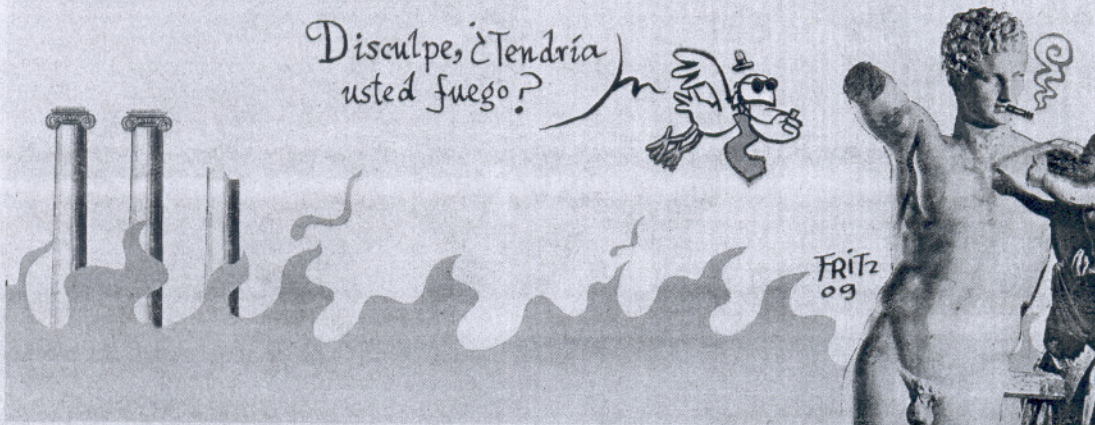 Disculpe, ¿Tendría
usted fuego?
FRITZ
09